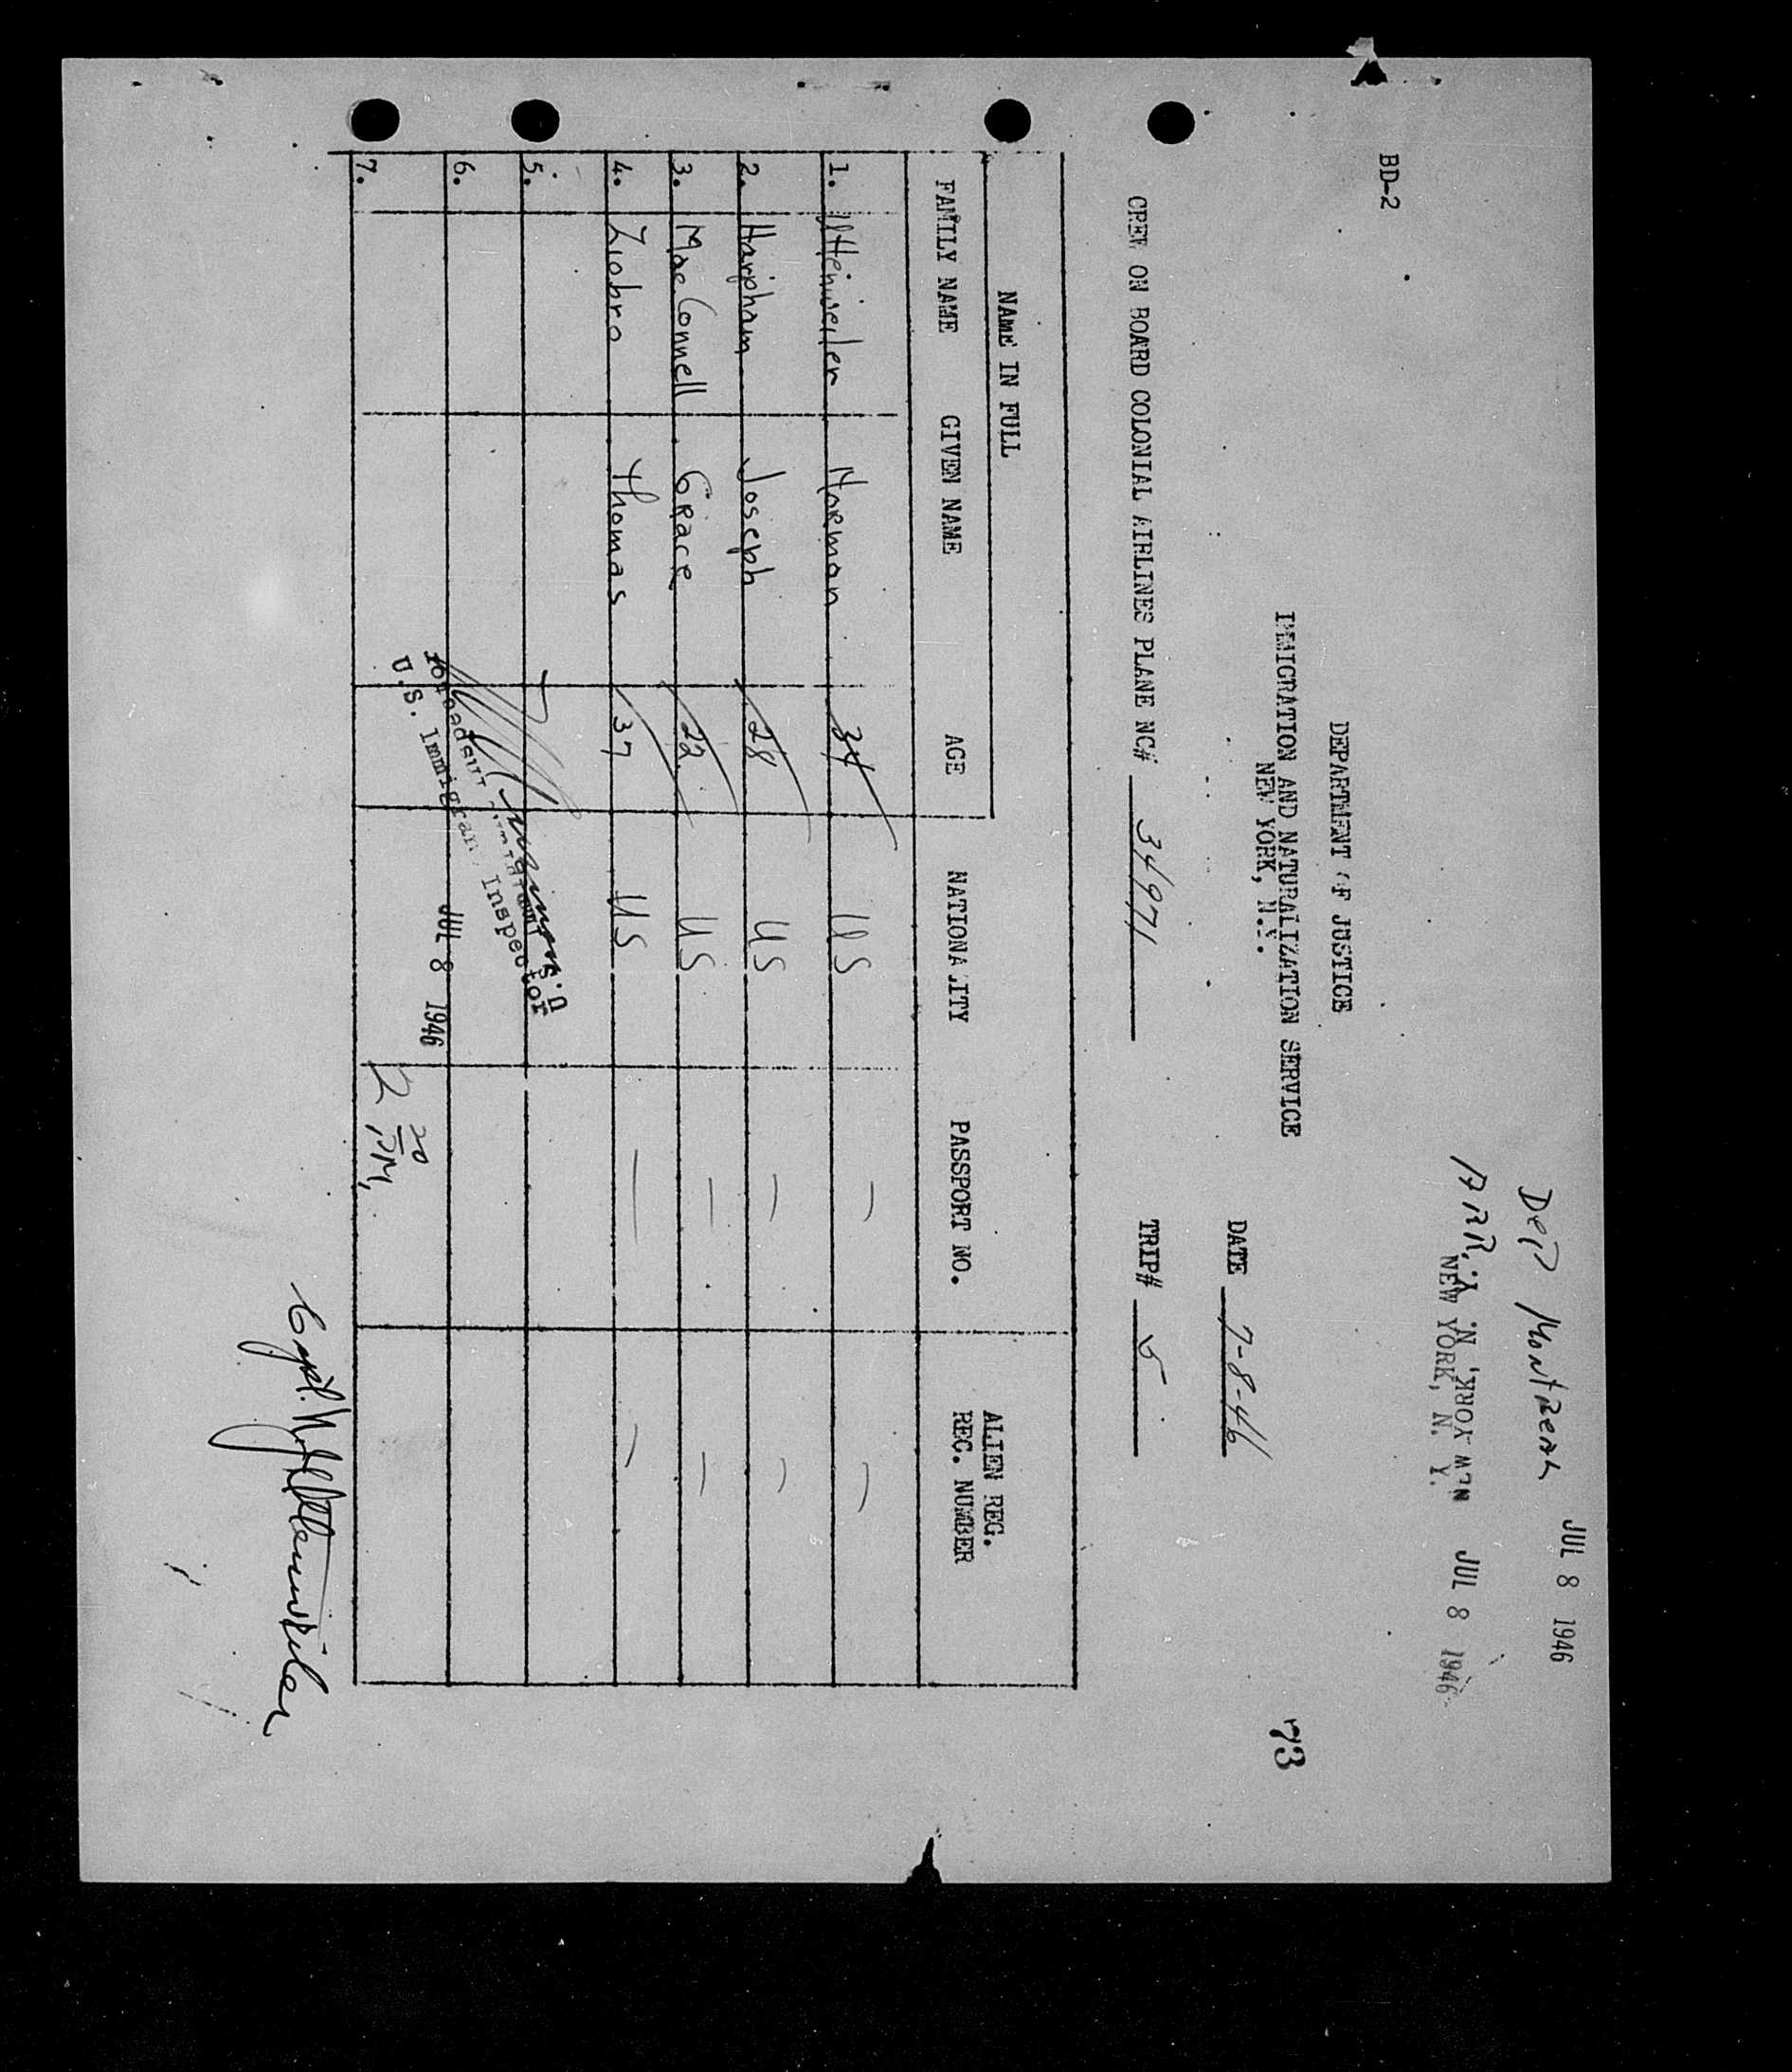 DEP MONTREAL JUL 8 1946
ARR. NEW YORK, N. Y. JUL 8 1946
NEW YORK, N. Y.
BD-2
DEPARTMENT OF JUSTICE
IMMIGRATION AND NATURALIZATION SERVICE
NEW YORK, N.Y.
73
DATE 7-8-46
CREW ON BOARD COLONIAL AIRLINES PLANE NC# 34971 TRIP# 5
NAME IN FULL
FAMILY NAME GIVEN NAME AGE NATIONALITY PASSPORT NO. ALIEN REG. REC. NUMBER
1. Norman 34 US — —
2. Haripham Joseph 28 US — —
3. MacConnell Grace 22 US — —
4. Ziobro Thomas 37 US — —
5.
6.
7.
U.S. Immigrant Inspector
JUL 8 1946
2 20 PM.
Capt.